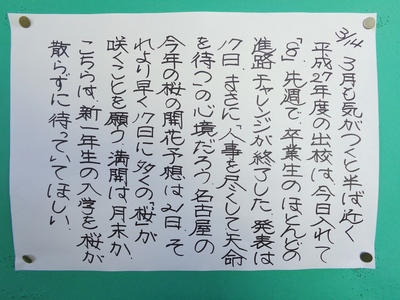 3/14 3月も気がつくと半ば近く
平成27年度の出校は、今日入れて
「8」。先週で、卒業生のほとんどの
進路チャレンジが終了した。発表は
17日。まさに、「人事を尽くして天命
を待つ」の心境だろう。名古屋の
今年の桜の開花予想は21日。そ
れより早く17日に多くの「桜」が
咲くことを願う。満開は月末か。
こちらは、新一年生の入学を桜が
散らずに待っていてほしい。